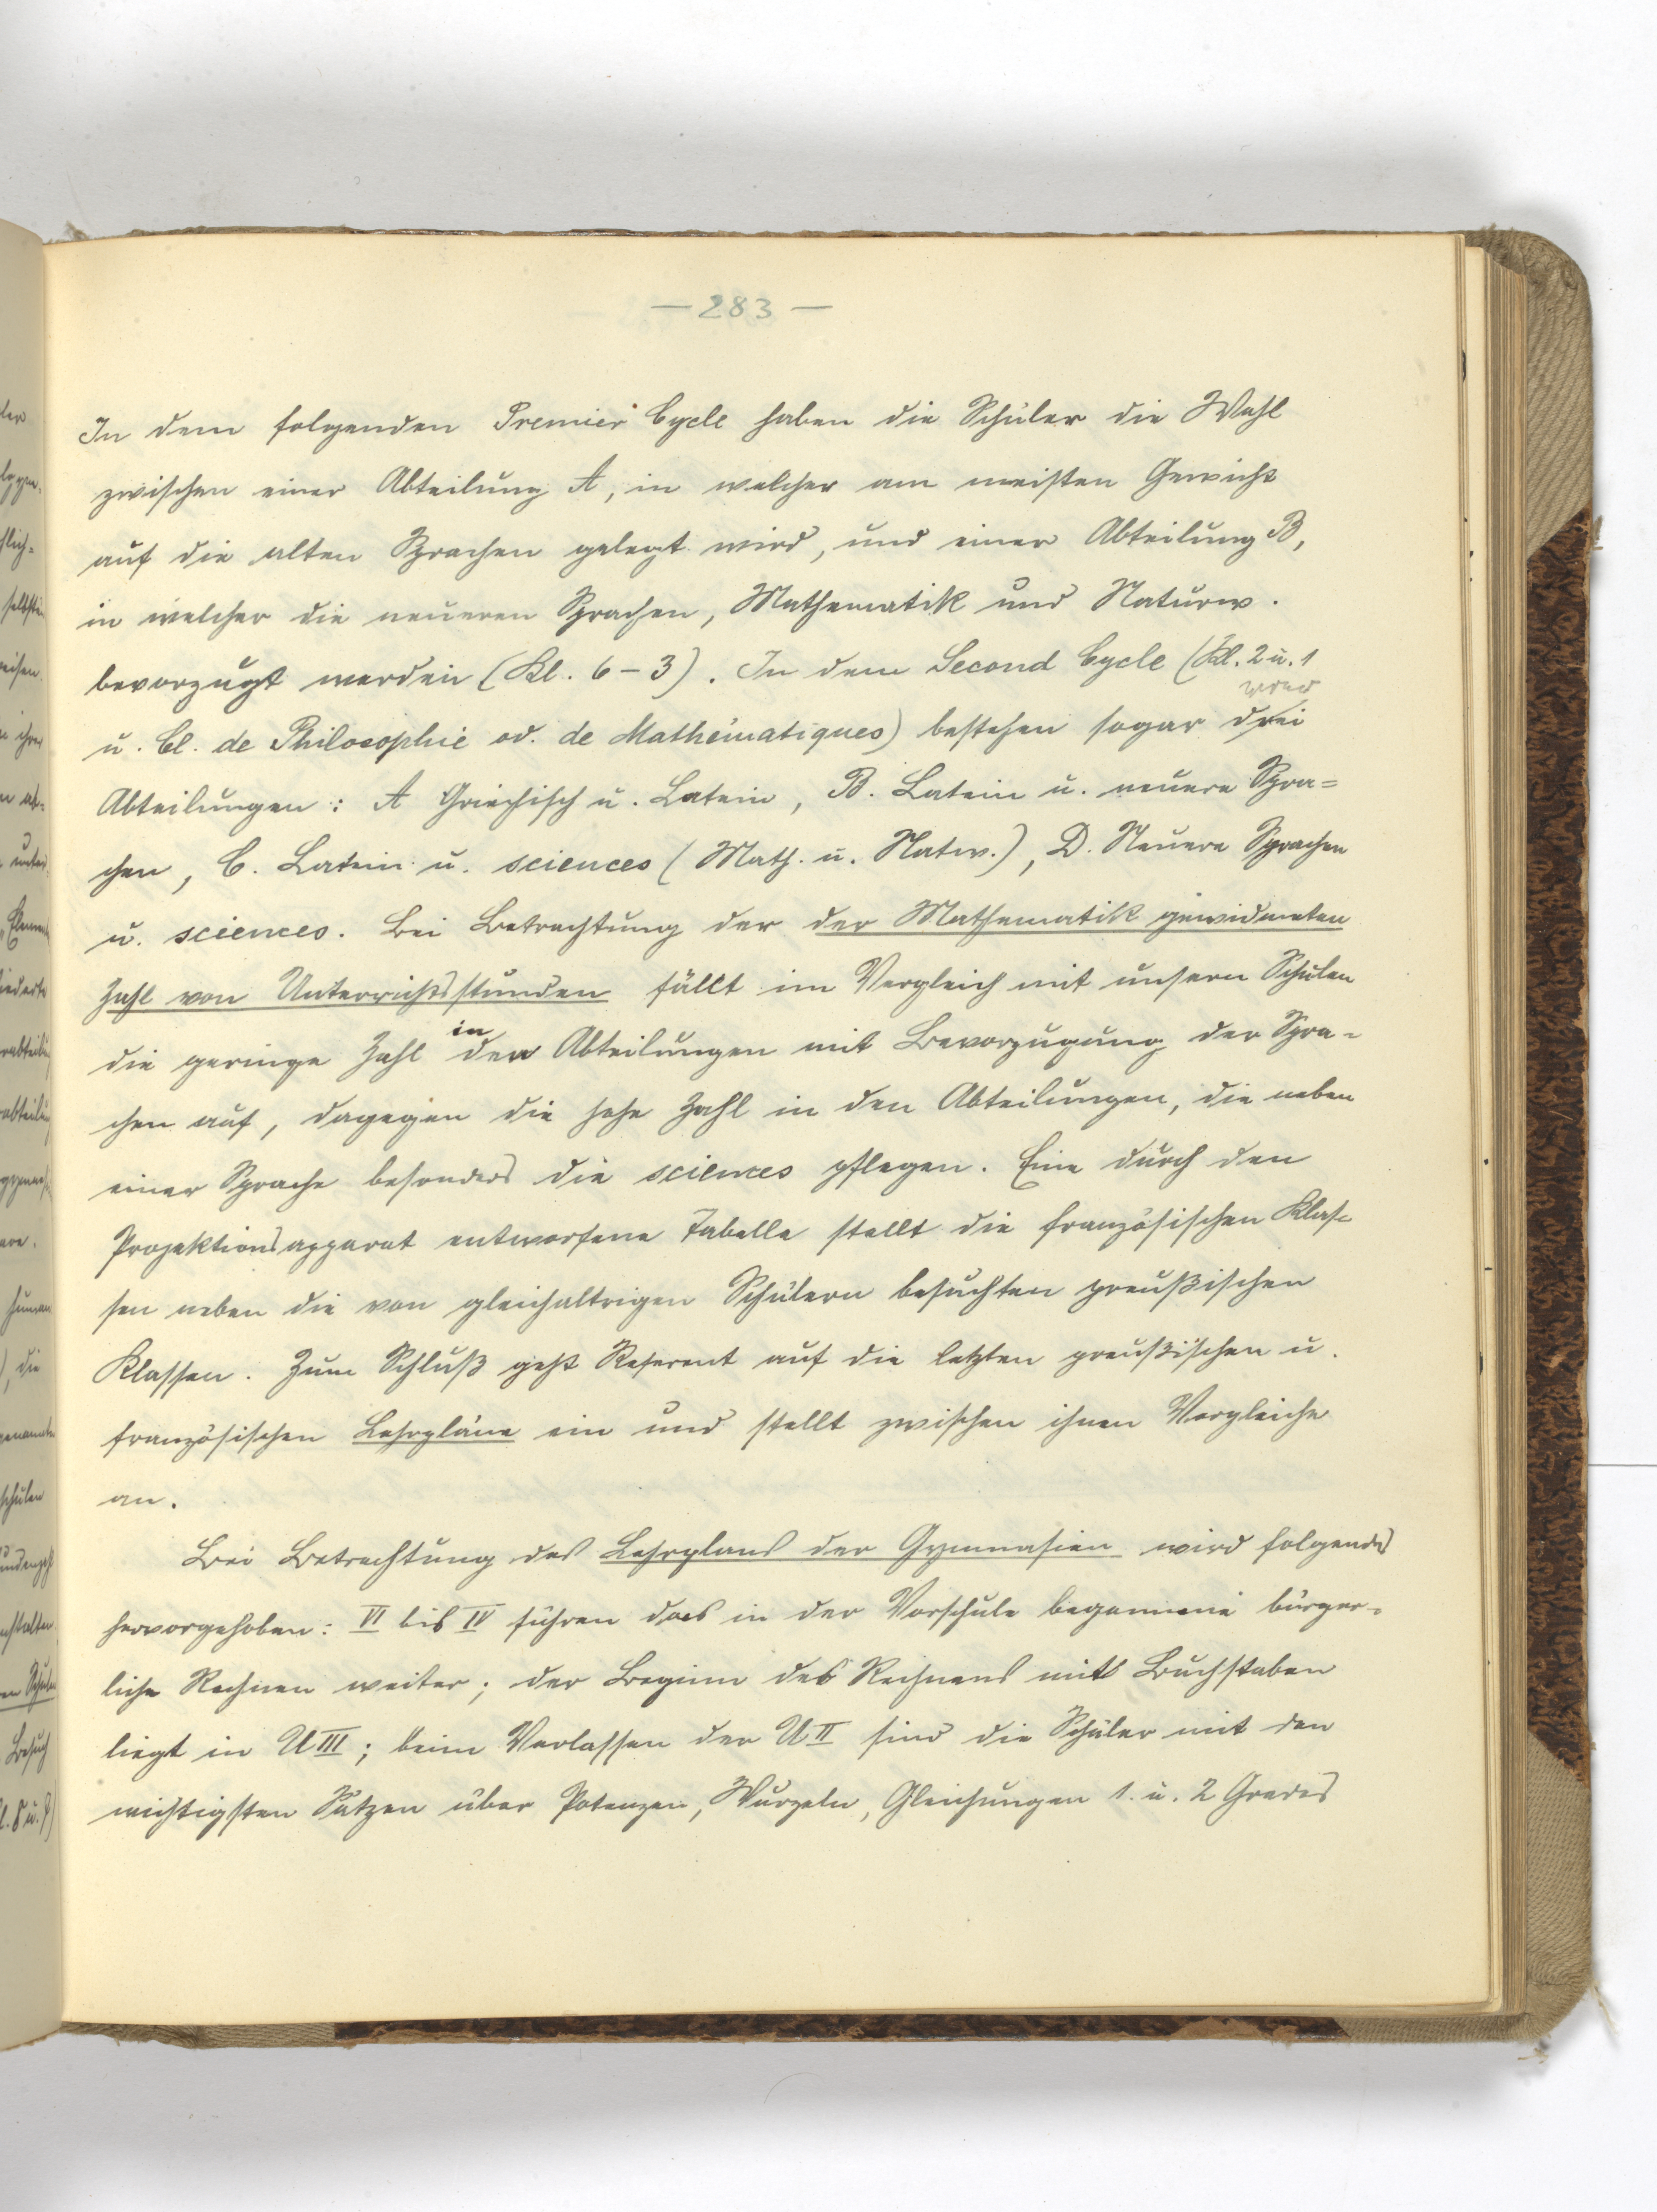 — 283 —
In dem folgenden Premier Cycle haben die Schüler die Wahl
zwischen einer Abteilung A, in welcher am meisten Gewicht
auf die alten Sprachen gelegt wird, und einer Abteilung B,
in welcher die neueren Sprachen, Mathematik und Naturw.
bevorzugt werden (Kl. 6-3). In dem Second Cycle (Kl. 2 u. 1
u. Cl. de Philosophie od. de Mathématiques) bestehen sogar drei
Abteilungen: A Griechisch u. Latein, B. Latein u. neuere Spra=
chen, C. Latein u. sciences (Math. u. Natw.), D. Neuere Sprachen
u. sciences. Bei Betrachtung der der Mathematik gewidmeten
Zahl von Unterrichtsstunden fällt im Vergleich mit unsern Schulen
die geringe Zahl in den Abteilungen mit Bevorzugung der Spra=
chen auf, dagegen die hohe Zahl in den Abteilungen, die neben
einer Sprache besonders die sciences pflegen. Eine durch den
Projektionsapparat entworfene Tabelle stellt die französischen Klas=
sen neben die von gleichaltrigen Schülern besuchten preußischen
Klassen. Zum Schluß geht Referent auf die letzten preußischen u.
französischen Lehrpläne ein und stellt zwischen ihnen Vergleiche
an.
Bei Betrachtung des Lehrplans der Gymnasien wird folgendes
hervorgehoben: VI bis IV führen das in der Vorschule begonnene bürger=
liche Rechnen weiter; der Beginn des Rechnens mit Buchstaben
liegt in U III; beim Verlassen der U II sind die Schüler mit den
wichtigsten Sätzen über Potenzen, Wurzeln, Gleichungen 1. u. 2 Grades